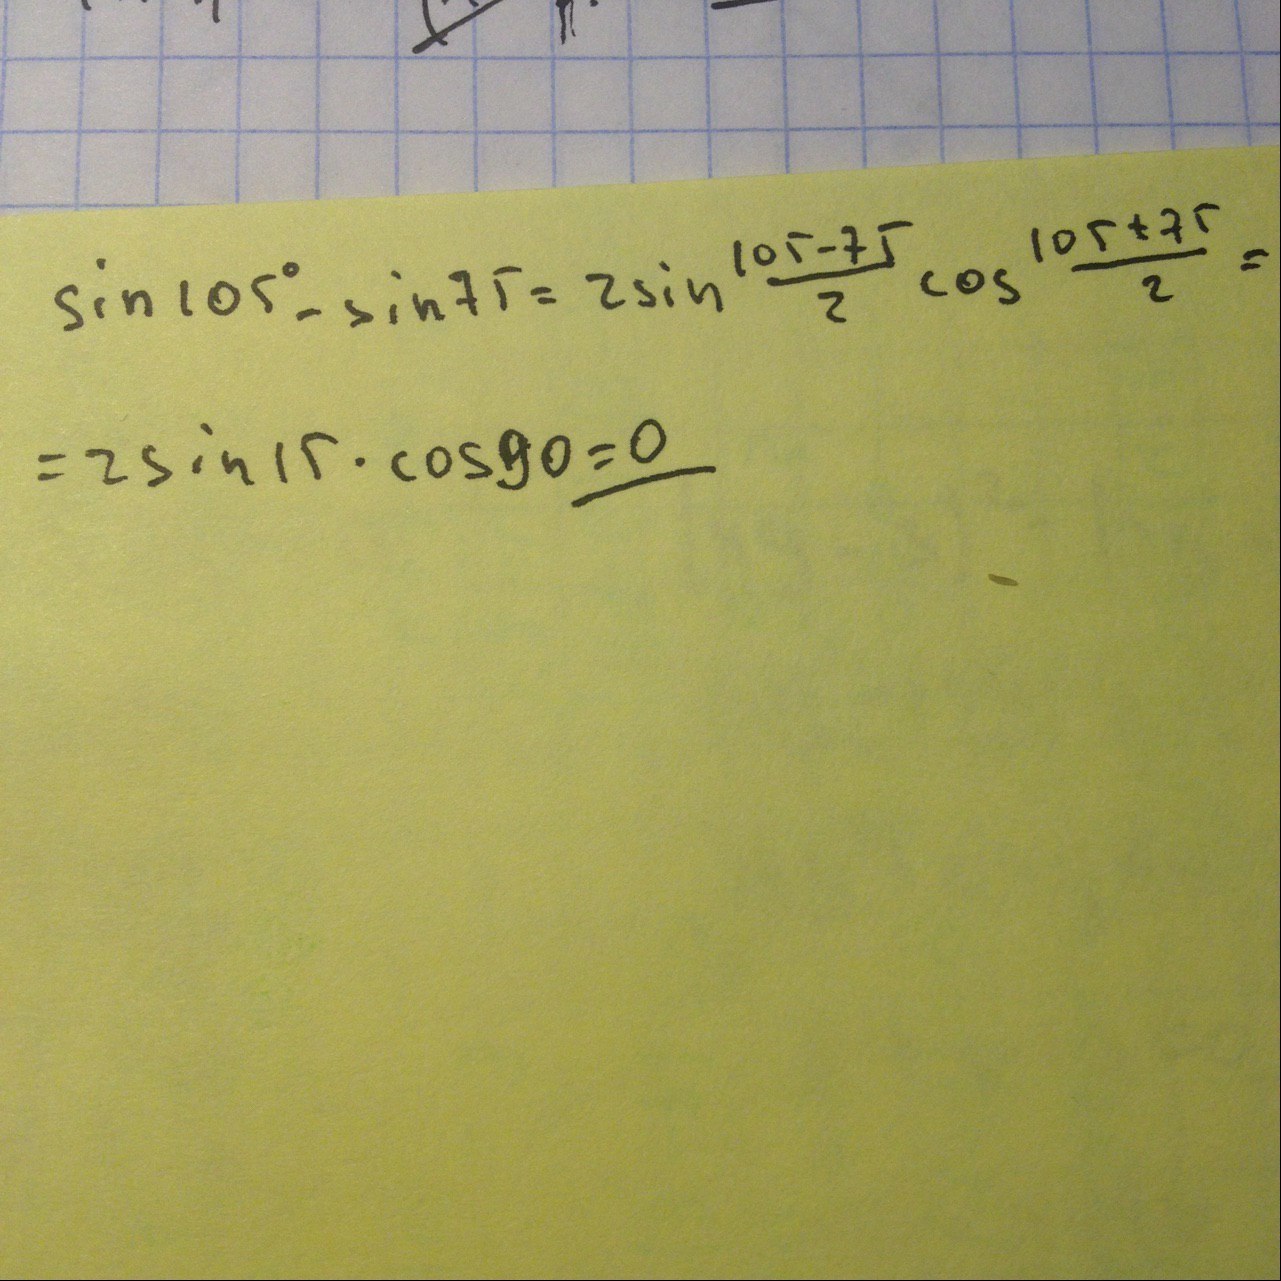 sin105° - sin75 = 2sin (105-75)/2 cos (105+75)/2 =
= 2sin15 · cos90 = 0